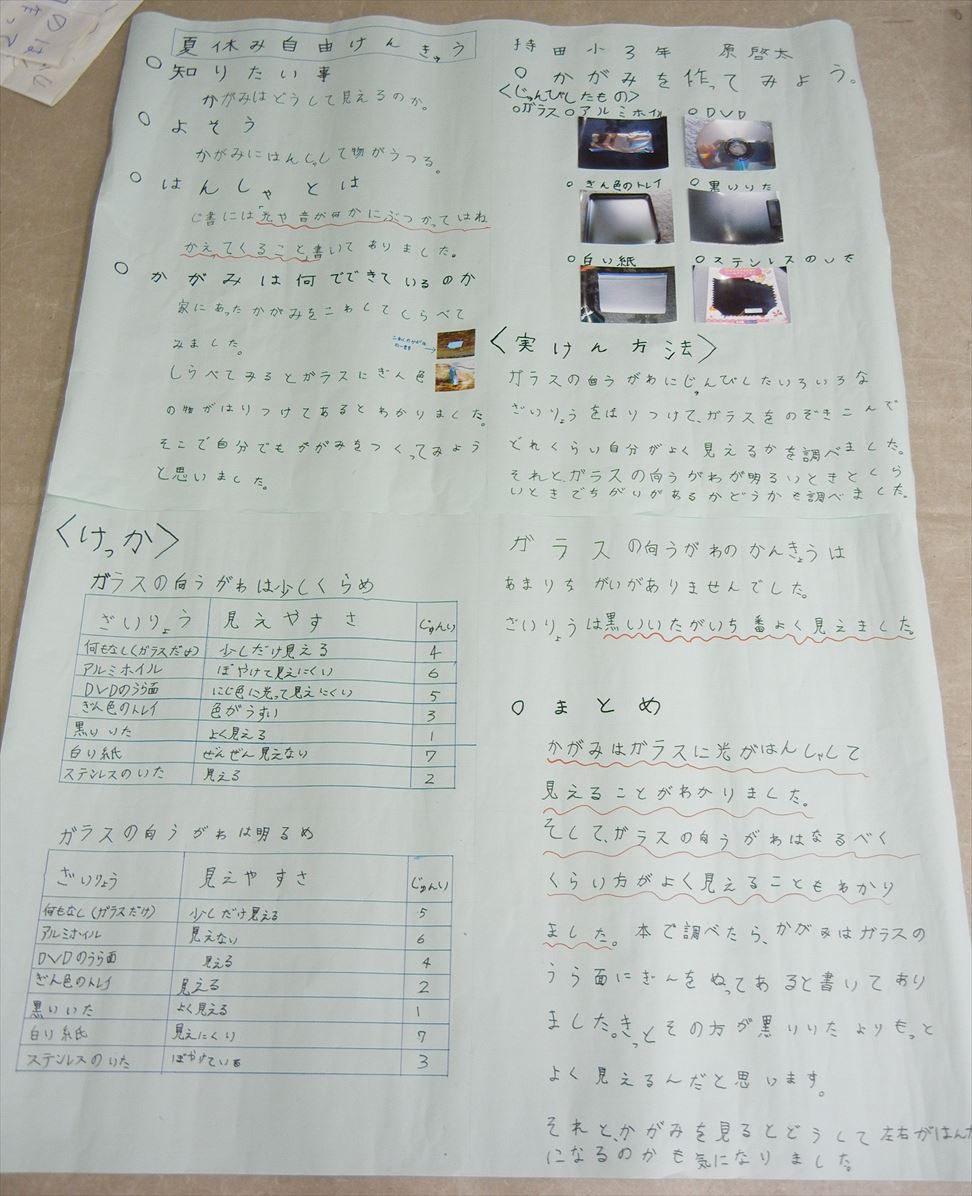 夏休み自由けんきゅう
持田小3年 原啓太
○知りたい事
かがみはどうして見えるのか。
○よそう
かがみにはんしゃして物がうつる。
○はんしゃとは
じ書には「光や音が何かにぶつかってはね
かえてくること」書いてありました。
○かがみは何でできているのか
家にあったかがみをこわしてしらべて
みました。
しらべてみるとガラスにぎん色
の物がはりつけてあるとわかりました。
そこで自分でもかがみをつくってみよう
と思いました。
○かがみを作ってみよう。
<じゅんびしたもの>
○ガラス○アルミホイル ○DVD
○ぎん色のトレイ ○黒いいた
○白い紙 ○ステンレスのいた
<実けん方法>
ガラスの向うがわにじゅんびしたいろいろな
ざいりょうをはりつけて、ガラスをのぞきこんで
どれくらい自分がよく見えるかを調べました。
それと、ガラスの向うがわが明るいときとくら
いときでちがいがあるかどうかも調べました。
<けっか>
ガラスの向うがわは少しくらめ
ざいりょう 見えやすさ じゅんい
何もなし(ガラスだけ) 少しだけ見える 4
アルミホイル ぼやけて見えにくい 6
DVDのうら面 にじ色に光って見えにくい 5
ぎん色のトレイ 色がうすい 3
黒いいた よく見える 1
白い紙 ぜんぜん見えない 7
ステンレスのいた 見える 2
ガラスの向うがわは明るめ
ざいりょう 見えやすさ じゅんい
何もなし(ガラスだけ) 少しだけ見える 5
アルミホイル 見えない 6
DVDのうら面 見える 4
ぎん色のトレイ 見える 2
黒いいた よく見える 1
白い紙 見えにくい 7
ステンレスのいた ぼやけている 3
ガラスの向うがわのかんきょうは
あまりちがいがありませんでした。
ざいりょうは黒いいたがいち番よく見えました。
○まとめ
かがみはガラスに光がはんしゃして
見えることがわかりました。
そして、ガラスの向うがわはなるべく
くらい方がよく見えることもわかり
ました。本で調べたら、かがみはガラスの
うら面にぎんをぬってあると書いてあり
ました。きっとその方が黒いいたよりもっと
よく見えるんだと思います。
それと、かがみを見るとどうして左右がはんた
になるのかも気になりました。